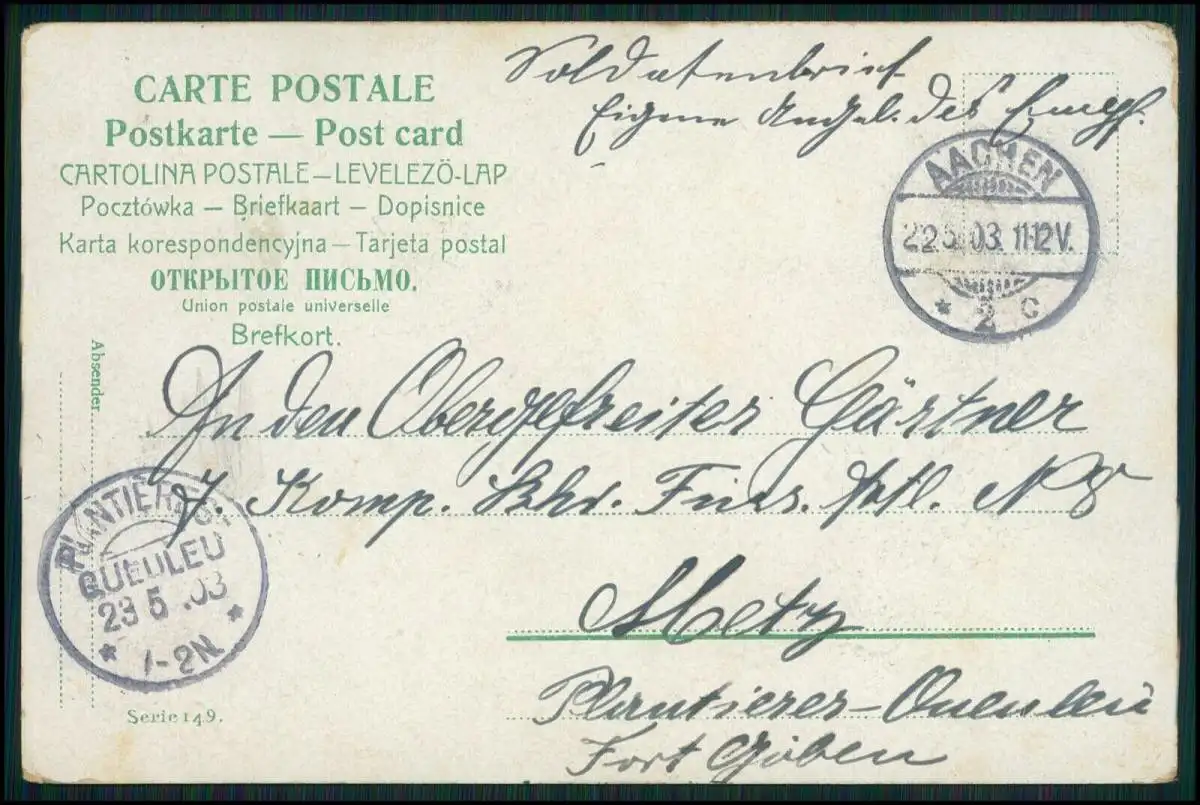 CARTE POSTALE
Postkarte — Post card
CARTOLINA POSTALE — LEVELEZÖ-LAP
Pocztówka — Briefkaart — Dopisnice
Karta korespondencyjna — Tarjeta postal
ОТКРЫТОЕ ПИСЬМО.
Union postale universelle
Brefkort.
Soldatenbrief
Eigene Angel. des Empf.
AACHEN
22.5.03. 11-12V.
* 2 c
Absender.
An den Obergefreiter Gärtner
7. Komp. Fuss. Artl. No 8
Metz
Plantierer-Queuleu
Fort Göben
QUEULEU
23 5 .03
* 1-2N. *
Serie 149.